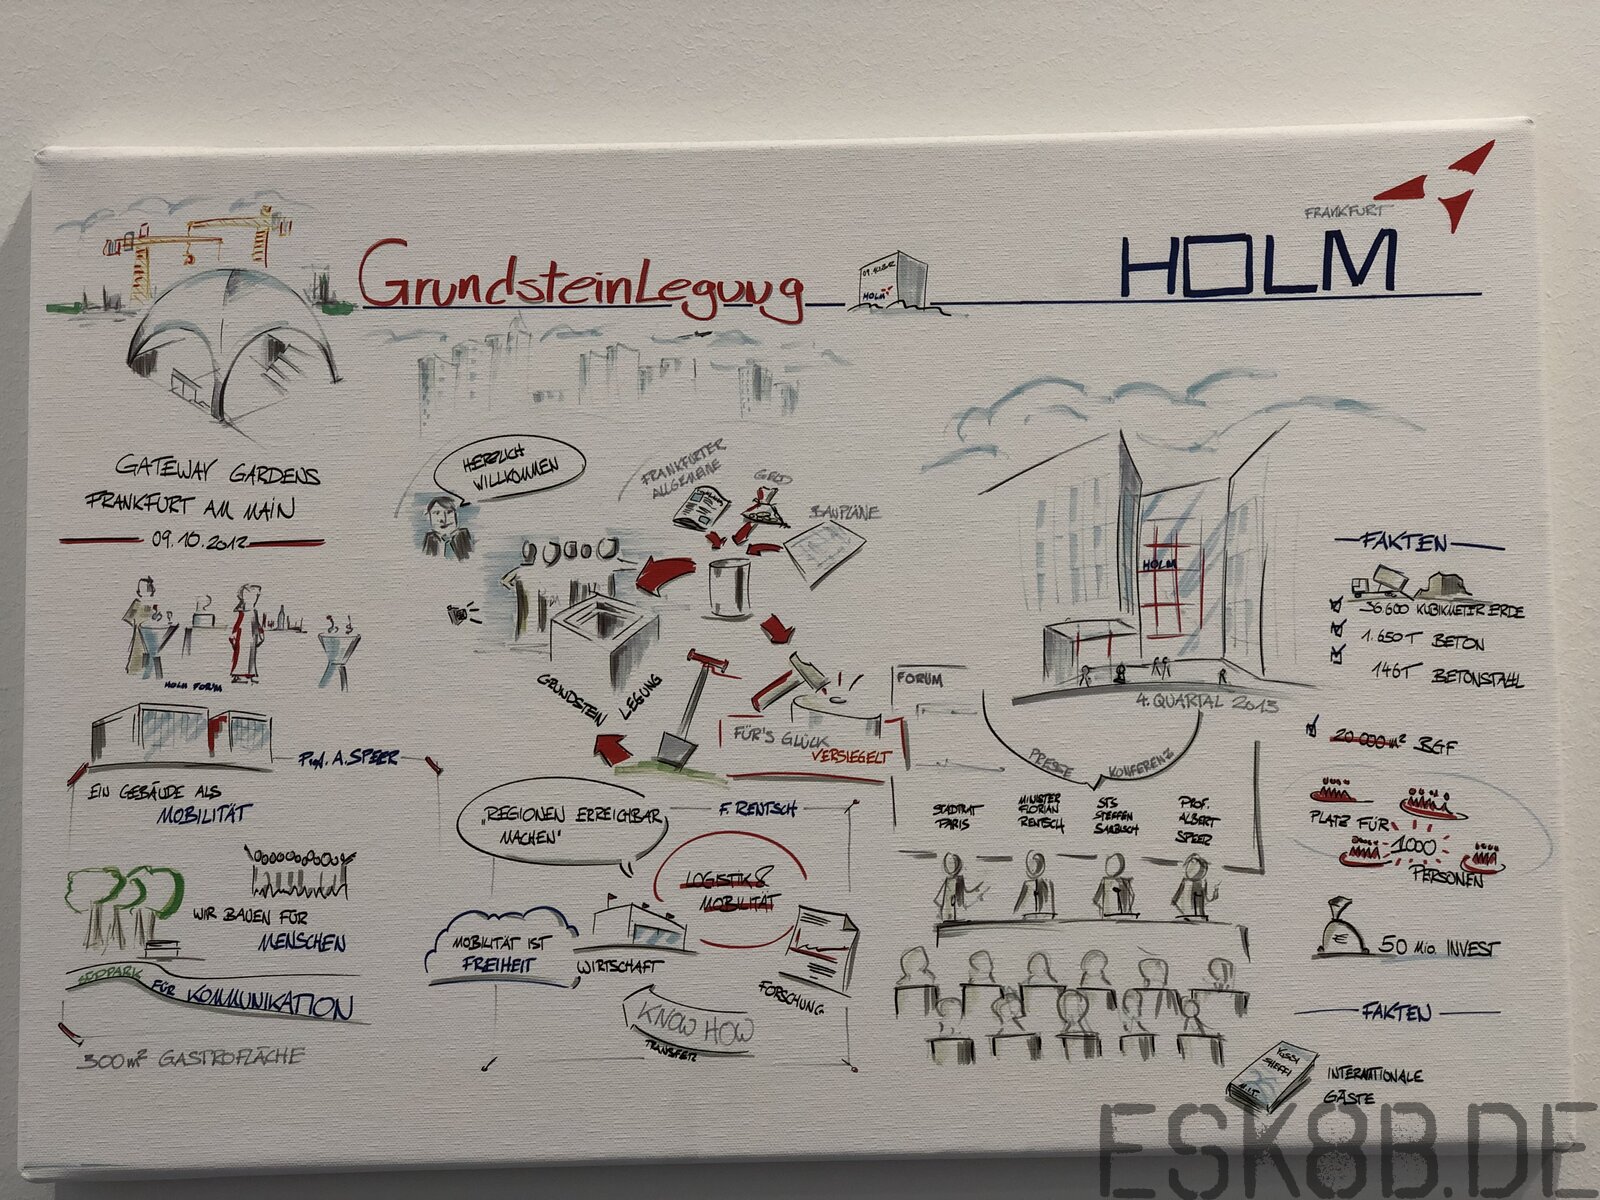 FRANKFURT
HOLM
GrundsteinLegung
09.10.2012
HOLM
GATEWAY GARDENS
FRANKFURT AM MAIN
09.10.2012
HOLM FORUM
Prof. A. SPEER
EIN GEBÄUDE ALS
MOBILITÄT
WIR BAUEN FÜR
MENSCHEN
SÜDPARK
FÜR KOMMUNIKATION
300 m² GASTROFLÄCHE
HERZLICH
WILLKOMMEN
FRANKFURTER
ALLGEMEINE
GELD
BAUPLÄNE
GRUNDSTEIN
LEGUNG
FÜR'S GLÜCK
VERSIEGELT
„REGIONEN ERREICHBAR
MACHEN"
F. RENTSCH
LOGISTIK &
MOBILITÄT
MOBILITÄT IST
FREIHEIT
WIRTSCHAFT
FORSCHUNG
KNOW HOW
TRANSFER
FORUM
HOLM
4. QUARTAL 2013
PRESSE KONFERENZ
STADTRAT
PARIS
MINISTER
FLORIAN
RENTSCH
STS
STEFFEN
SAEBISCH
PROF.
ALBERT
SPEER
FAKTEN
36.600 KUBIKMETER ERDE
1.650T BETON
146T BETONSTAHL
20 000 m² BGF
PLATZ FÜR
1000
PERSONEN
50 Mio. INVEST
FAKTEN
YOSSI
SHEFFI
M.I.T.
INTERNATIONALE
GÄSTE
ESK8B.DE